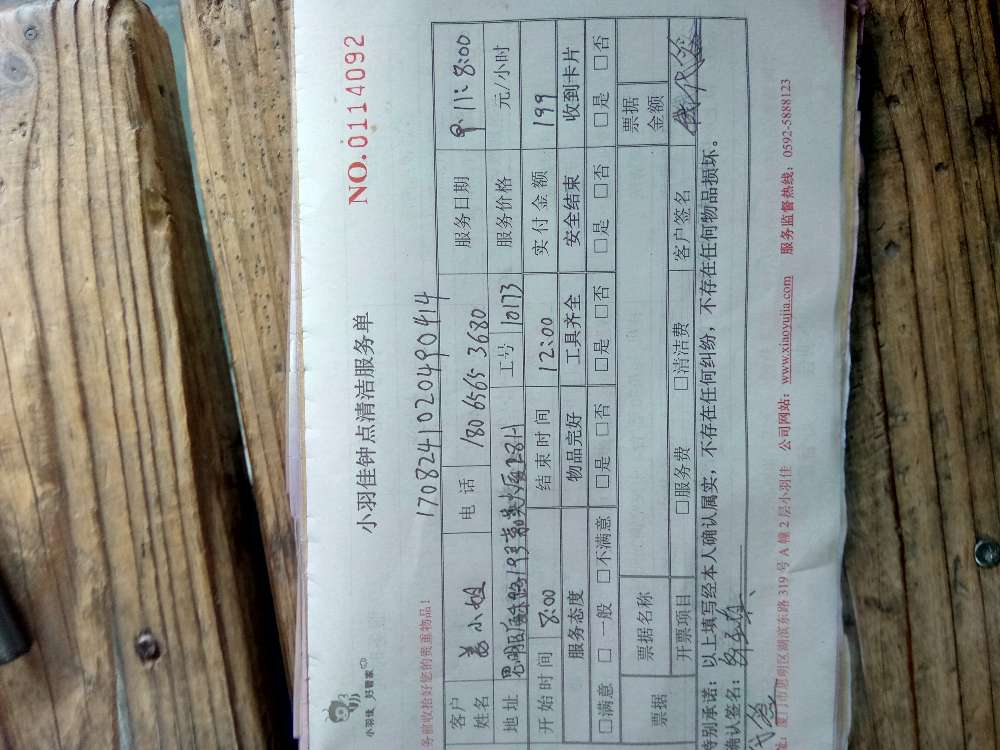 小羽佳 好管家
小羽佳钟点清洁服务单
NO.01114092
务前收拾好您的贵重物品!
1708241020490414
客户姓名 姜小姐 电话 180 6565 3680 服务日期 9.11: 8:00
地址 思明区 路193 大厦2811 工号 10173 服务价格 元/小时
开始时间 8:00 结束时间 12:00 实付金额 199
服务态度 物品完好 工具齐全 安全结束 收到卡片
□满意 □一般 □不满意 □是 □否 □是 □否 □是 □否 □是 □否
票据 票据名称 票据金额
开票项目 □服务费 □清洁费 客户签名
特别承诺:以上填写经本人确认属实,不存在任何纠纷,不存在任何物品损坏。
确认签名:
址:厦门市思明区湖滨东路319号A幢2层小羽佳 公司网站:www.xiaoyujia.com 服务监督热线:0592-5888123